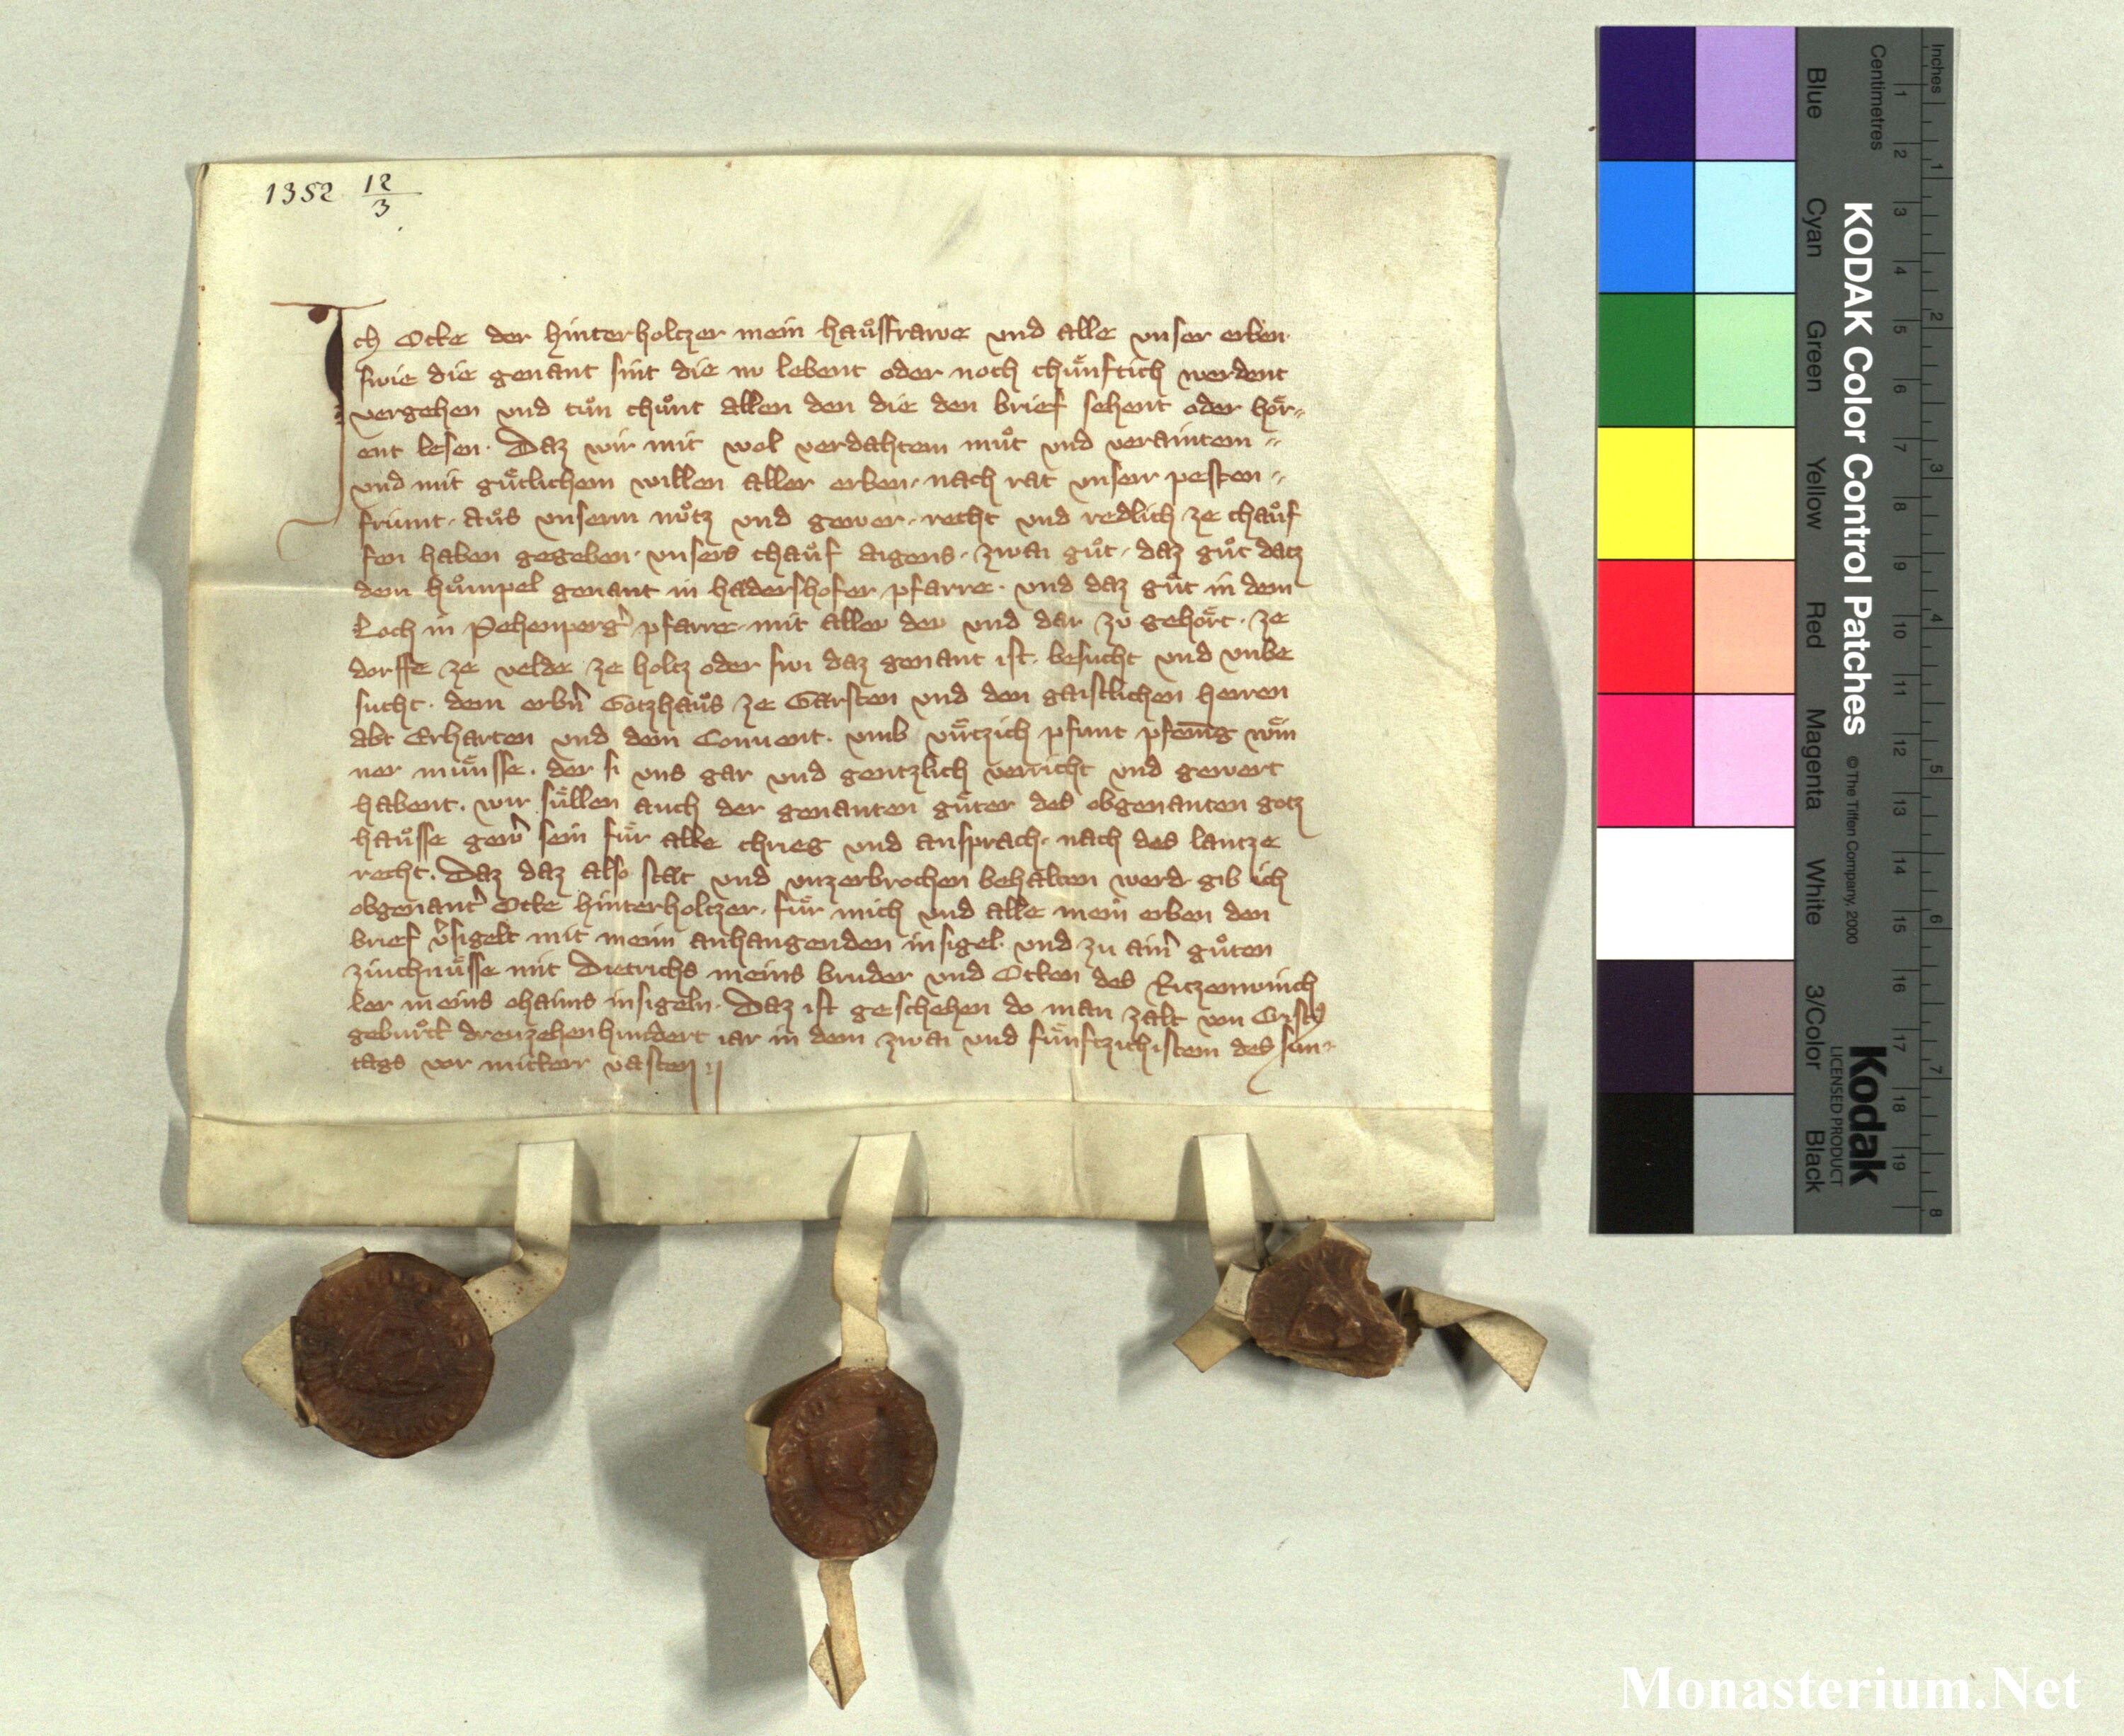 1352 12/3
Ich Otke der Hinterholczer mein hauͦsfrawe vnd alle vnser erben·
swie die genant sint die nv lebent oder noch chuͤnftich werdent
vergehen vnd tuͦn chuͦnt allen den die den brief sehent oder hoͤr„
ent lesen· Daz wir mit wol verdahtem muͦt vnd veraintem „
vnd mit guͤtlichem willen aller erben· nach rat vnserr pesten „
friunt· auͦs vnserm nuͦtz vnd gewer· recht vnd redlich ze chauͦf
fen haben gegeben· vnsers chauͦf aigens· zwai guͦt· daz guͦt datz
dem huͦmpel genant in hadershofer pfarre· vnd daz guͦt in dem
Loch in Pehenperg̾ pfarre· mit aller der vnd dar zu gehoͤrt· ze
dorffe ze velde ze holtz oder swi daz genant ist· besucht vnd vnbe
sucht· dem erbn̾ Gotzhauͦs ze Gaͤrsten vnd den gaistlichen herren
abt Erharten vnd dem Conuent· vmb vuͤrtzich pfunt pfenīg wīn
ner muͤnsse· der si vns gar vnd gentzlich verricht vnd gewert
habent· wir suͤllen auch der genanten guͤter des obgenanten gotz
hauͦsse gew̾ sein fuͤr alle chrieg vnd ansprach· nach des lantze
recht· Daz daz also staͤt vnd vnzerbrochen behalten werd gib ich
obgenant̾ Otke Hinterholczer· fuͤr mich vnd alle mein erben den
brief v̾sigelt mit meim anhangenden insigel· vnd zu aim̾ guͦten
ziuchnuͤsse mit Dietrichs meins bruder vnd Otken des Ritzenwinch
ler meins ohaims insigeln· Daz ist geschehen do man zalt von Christ⁹
geburͦt dreuzehenhundert iar in dem zwai vnd fuͤnftzichistem des sun„
tags vor mitterr vasten
KODAK Color Control Patches
© The Tiffen Company, 2000
Kodak
LICENSED PRODUCT
Blue Cyan Green Yellow Red Magenta White 3/Color Black
Inches 1 2 3 4 5 6 7 8
Centimetres 1 2 3 4 5 6 7 8 9 10 11 12 13 14 15 16 17 18 19
Monasterium.Net